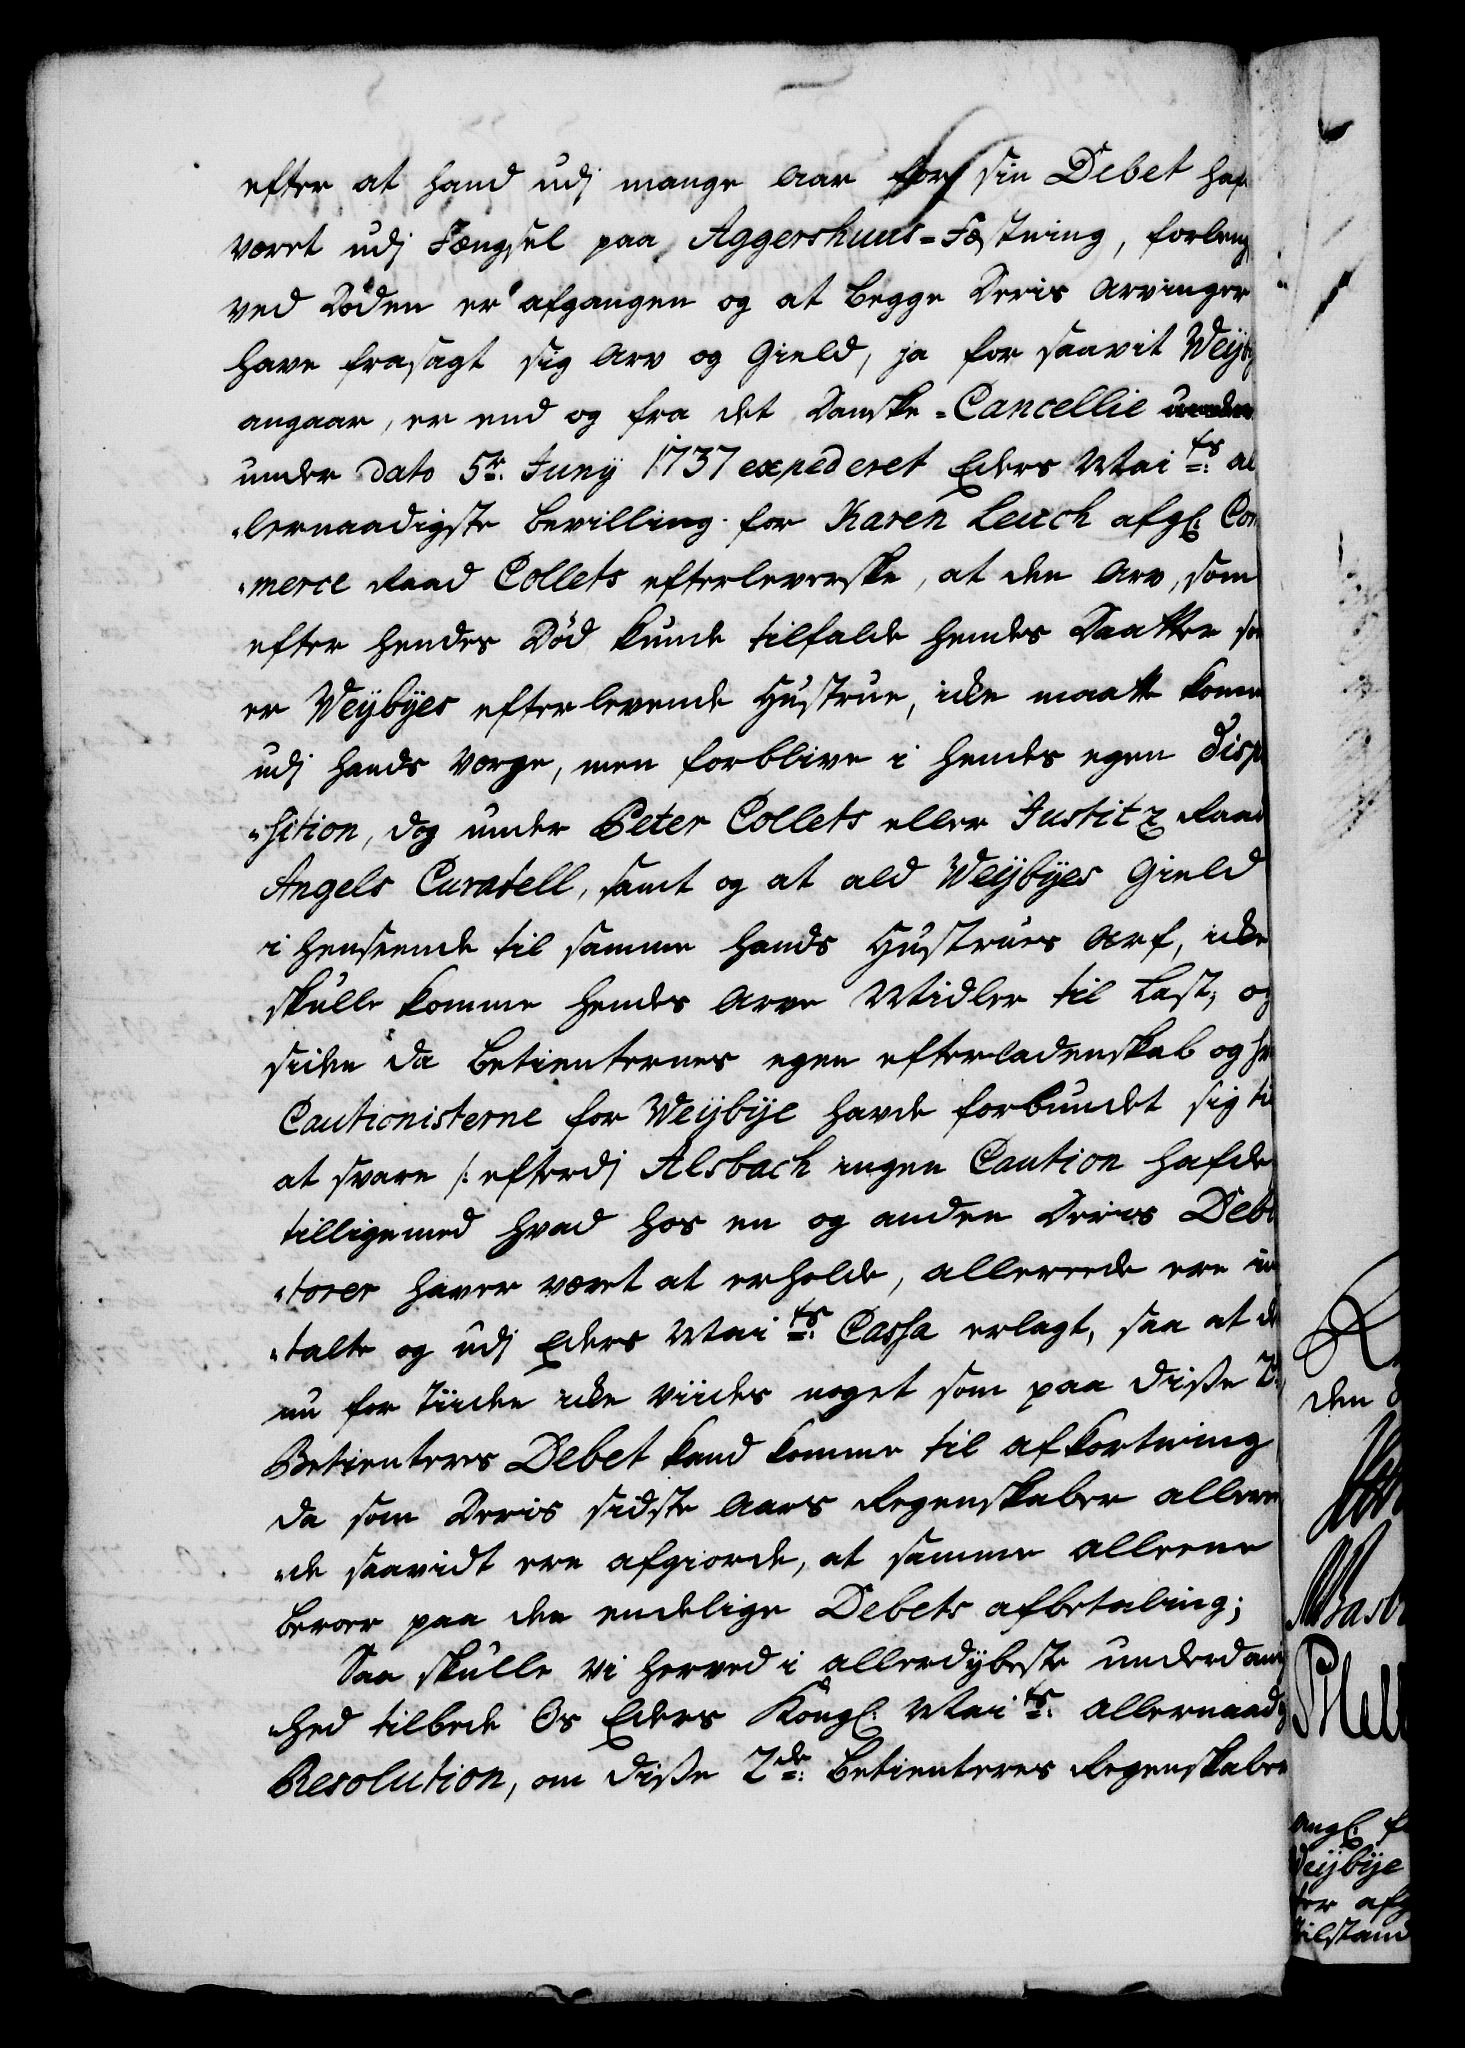 efter at hand udj mange Aar for sin Debet haf
været udj Fængsel paa Aggershuus=Fæstning, forleng
ved Døden er afgangen og at begge Deris Arvinger
have frasagt sig Arv og Gield, ja for saavit Weyb
angaar, er end og fra det Danske=Cancellie
under dato 5te Juny 1737 expederet Eders Mai ts: al
„lernaadigste bevilling for Karen Leuch afgl: Com
„merce Raad Collets efterleverske, at den Arv, som
efter hendes Død kunde tilfalde hendes Daatter so
er Weybyes efterlevende Hustrue, icke maatte komm
udj hands Værge, men forblive i hendes egen Disp
„sition, dog under Peter Collets eller Justitz Raad
Angels Curatell, samt og at ald Weybyes Gield
i henseende til samme hands Hustrues Arf, icke
skulle komme hendes Arve Midler til Last, og
siden da betienternes egen efterladenskab og h
Cautionisterne for Weybye havde forbundet sig til
at svare /: efterdj Alsbach ingen Caution hafde
tilligemed hvad hos en og anden Deris Debi
„torer haver været at erholde, allereede ere in
„talte og udj Eders Mai ts: Cassa erlagt, saa at d
nu for Tiiden icke viides noget som paa disse 2de
Betienteres Debet kand komme til afkortning
da som Deris sidste Aars Regenskaber allere
„de saavidt ere afgiorde, at samme alleene
beroer paa den endelige Debets afbetaling;
Saa skulle vi herved i allerdybeste underdanig
hed tilbede Os Eders Kongl: Mai ts: allernaadig
Resolution, om disse 2de: betienteres Regenskaber
den
angl: f
Weybye
ter afg
tilstand